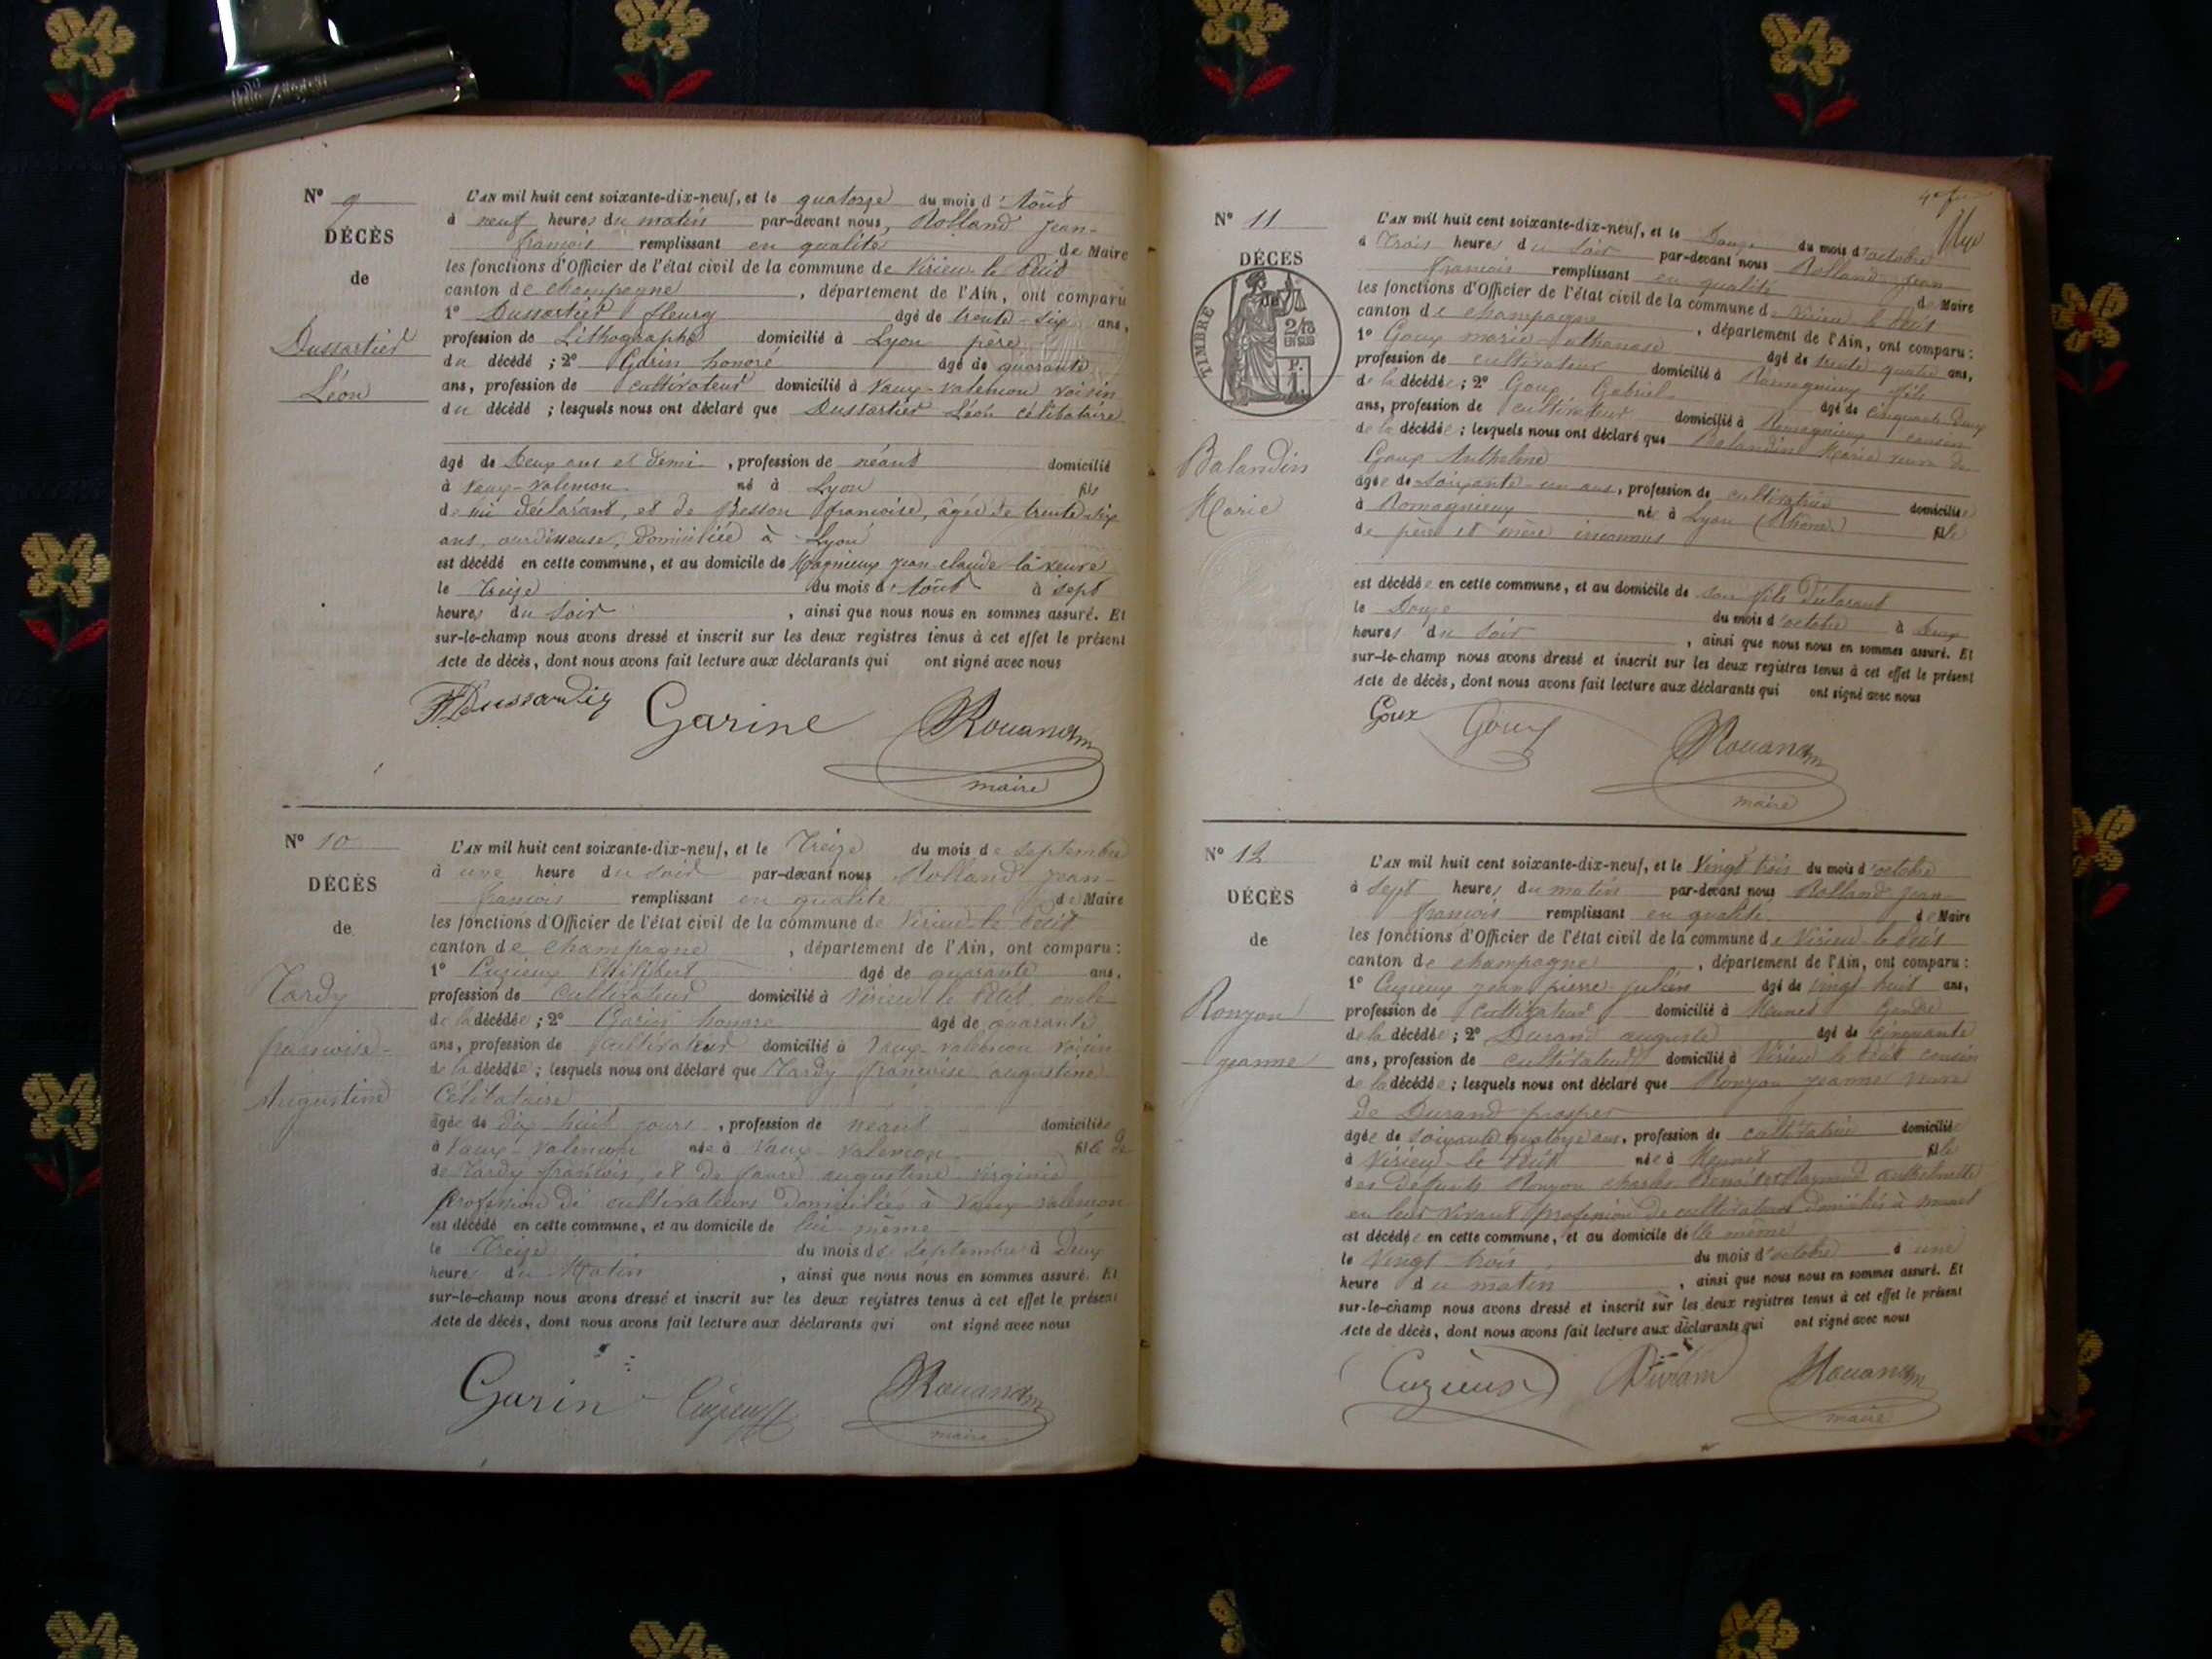 N° 9
DÉCÈS
de
Dussartier
Léon
L'AN mil huit cent soixante-dix-neuf, et le quatorze du mois d'Aoûst
à neuf heures du matin par-devant nous, Rolland jean-
françois remplissant en qualité de Maire
les fonctions d'Officier de l'état civil de la commune de Virieu le Petit
canton de champagne, département de l'Ain, ont comparu
1° Dussartier fleury âgé de trente-six ans,
profession de Lithographe domicilié à Lyon père
du décédé ; 2° Garin honoré âgé de quarante
ans, profession de cultivateur domicilié à Vaux-valemon voisin
du décédé ; lesquels nous ont déclaré que Dussartier Léon célibataire
âgé de Deux ans et demi, profession de néant domicilié
à Vaux-valemon né à Lyon fils
de lui déclarant, et de Besson françoise, âgée de trente-six
ans, ourdisseuse, domiciliée à Lyon
est décédé en cette commune, et au domicile de Magnieux jean claude
le treize du mois d'Août à sept
heures du soir, ainsi que nous nous en sommes assuré. Et
sur-le-champ nous avons dressé et inscrit sur les deux registres tenus à cet effet le présent
Acte de décès, dont nous avons fait lecture aux déclarants qui ont signé avec nous
Garine
maire
N° 10
DÉCÈS
de
Tardy
françoise-
Augustine
L'AN mil huit cent soixante-dix-neuf, et le Treize du mois de septembre
à une heure du soir par-devant nous Rolland jean-
françois remplissant en qualité de Maire
les fonctions d'Officier de l'état civil de la commune de Virieu le Petit
canton de champagne, département de l'Ain, ont comparu :
1° Cuzieux Philibert âgé de quarante ans,
profession de cultivateur domicilié à Virieu le Petit oncle
de la décédée ; 2° Garin honoré âgé de quarante
ans, profession de cultivateur domicilié à Vaux-valemon voisin
de la décédée ; lesquels nous ont déclaré que Tardy françoise augustine
Célibataire
âgée de dix huit jours, profession de néant domiciliée
à Vaux-valemon née à Vaux-valemon fille
de Tardy françois, et de faure augustine virginie
profession de cultivateurs domiciliés à Vaux-valemon
est décédé en cette commune, et au domicile de lui-même
le Treize du mois de septembre à Deux
heures du Matin, ainsi que nous nous en sommes assuré. Et
sur-le-champ nous avons dressé et inscrit sur les deux registres tenus à cet effet le présent
Acte de décès, dont nous avons fait lecture aux déclarants qui ont signé avec nous
Garin Cuzieux
maire
N° 11
DÉCÈS
de
TIMBRE
Balandin
Marie
L'AN mil huit cent soixante-dix-neuf, et le Douze du mois d'octobre
à Trois heures du soir par-devant nous Rolland jean-
françois remplissant en qualité de Maire
les fonctions d'Officier de l'état civil de la commune de Virieu le Petit
canton de champagne, département de l'Ain, ont comparu :
1° Goux marie athanase âgé de trente quatre ans,
profession de cultivateur domicilié à Romagnieux fils
de la décédée ; 2° Goux Gabriel âgé de cinquante-deux
ans, profession de cultivateur domicilié à Romagnieux cousin
de la décédée ; lesquels nous ont déclaré que Balandin Marie veuve de
Goux Anthelme
âgée de soixante-un ans, profession de cultivatrice domiciliée
à Romagnieux née à Lyon (Rhône) fille
de père et mère inconnus
est décédée en cette commune, et au domicile de son fils déclarant
le Douze du mois d'octobre à deux
heures du soir, ainsi que nous nous en sommes assuré. Et
sur-le-champ nous avons dressé et inscrit sur les deux registres tenus à cet effet le présent
Acte de décès, dont nous avons fait lecture aux déclarants qui ont signé avec nous
Goux Goux
maire
N° 12
DÉCÈS
de
Ronzon
jeanne
L'AN mil huit cent soixante-dix-neuf, et le Vingt trois du mois d'octobre
à Sept heures du matin par-devant nous Rolland jean-
françois remplissant en qualité de Maire
les fonctions d'Officier de l'état civil de la commune de Virieu le Petit
canton de champagne, département de l'Ain, ont comparu :
1° Cuzieux jean pierre julien âgé de vingt-huit ans,
profession de cultivateur domicilié à Munet Gendre
de la décédée ; 2° Durand auguste âgé de cinquante
ans, profession de cultivateur domicilié à Virieu le Petit cousin
de la décédée ; lesquels nous ont déclaré que Ronzon jeanne veuve
de Durand prosper
âgée de soixante quatorze ans, profession de cultivatrice domiciliée
à Virieu-le Petit née à Munet fille
des défunts Ronzon charles Benoit et Raymond anthelmette
en leur vivant profession de cultivateurs domiciliés à munet
est décédée en cette commune, et au domicile de elle même
le Vingt trois du mois d'octobre à une
heure du matin, ainsi que nous nous en sommes assuré. Et
sur-le-champ nous avons dressé et inscrit sur les deux registres tenus à cet effet le présent
Acte de décès, dont nous avons fait lecture aux déclarants qui ont signé avec nous
Cuzieux Duran
maire